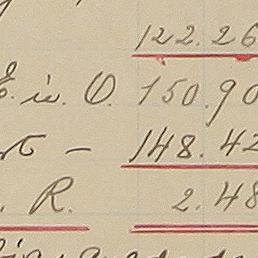 122.26
E. in. O. 150.90
- 148.42
. R. 2.48